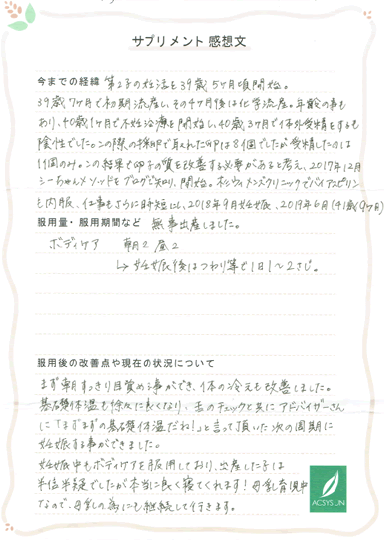 サプリメント 感想文
今までの経緯 第2子の妊活を39歳5ヶ月頃開始。
39歳7ヶ月で初期流産し、その4ヶ月後は化学流産。年齢の事も
あり、40歳1ヶ月で不妊治療を開始し、40歳3ヶ月で体外受精をするも
陰性でした。この際の採卵で取れた卵は8個でしたが受精したのは
1個のみ。この結果で卵子の質を改善する必要があると考え、2017年12月
シーちゃんメソッドをブログで知り、開始。杉ウィメンズクリニックでバイアスピリン
も内服、仕事もさらに時短にし、2018年9月妊娠、2019年6月(41歳9ヶ月)
服用量・服用期間など 無事出産しました。
ボディケア 朝2 昼2
↳妊娠後はつわり等で1日1〜2さじ。
服用後の改善点や現在の状況について
まず朝すっきり目覚める事ができ、体の冷えも改善しました。
基礎体温も徐々に良くなり、舌のチェックと共にアドバイザーさん
に「まずまずの基礎体温だね!」と言って頂いた次の周期に
妊娠する事ができました。
妊娠中もボディケアを服用しており、出産した子は
半信半疑でしたが本当に良く寝てくれます!母乳育児中
なので、母乳の為にも継続して行きます。
ACSYSON